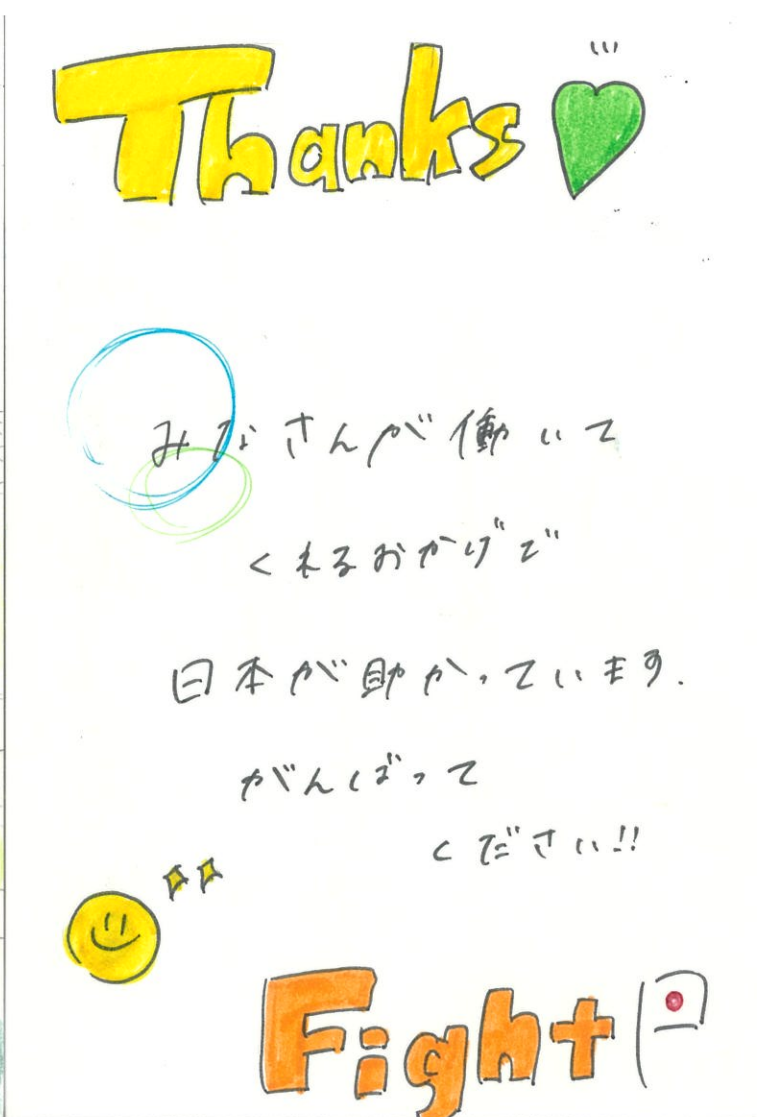 Thanks
みなさんが働いて
くれるおかげで
日本が助かっています.
がんばって
ください!!
Fight